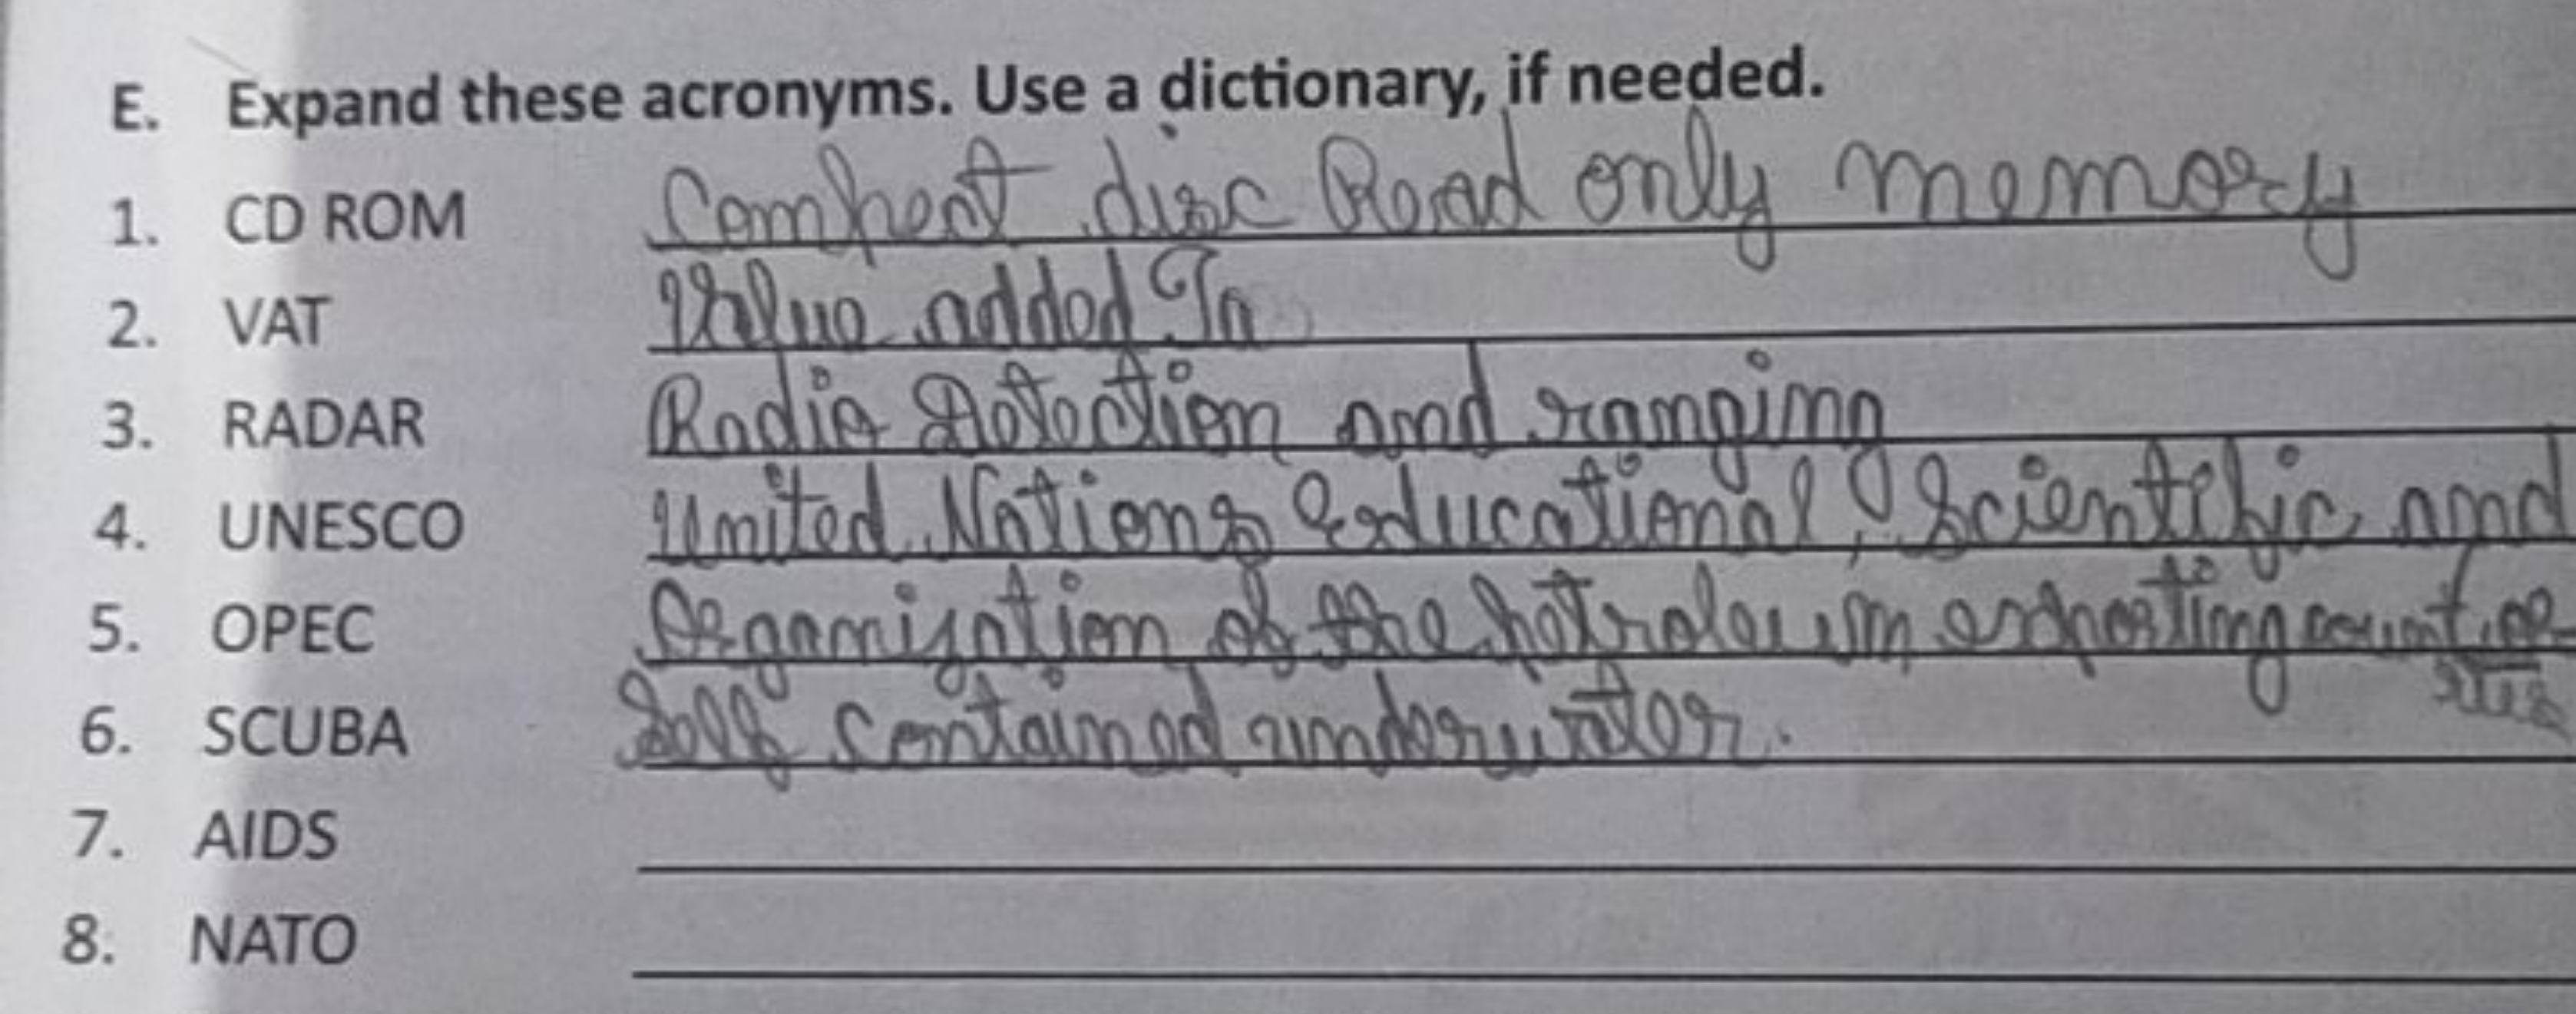 E. Expand these acronyms. Use a dictionary, if needed.
1. CD ROM Compeat disc Read only memory
2. VAT Value added Ta
3. RADAR Radio Detection and ranging
4. UNESCO United Nations Educational, Scientific and
5. OPEC Organization of the petroleum exporting
6. SCUBA Self contained underwater.
7. AIDS
8. NATO